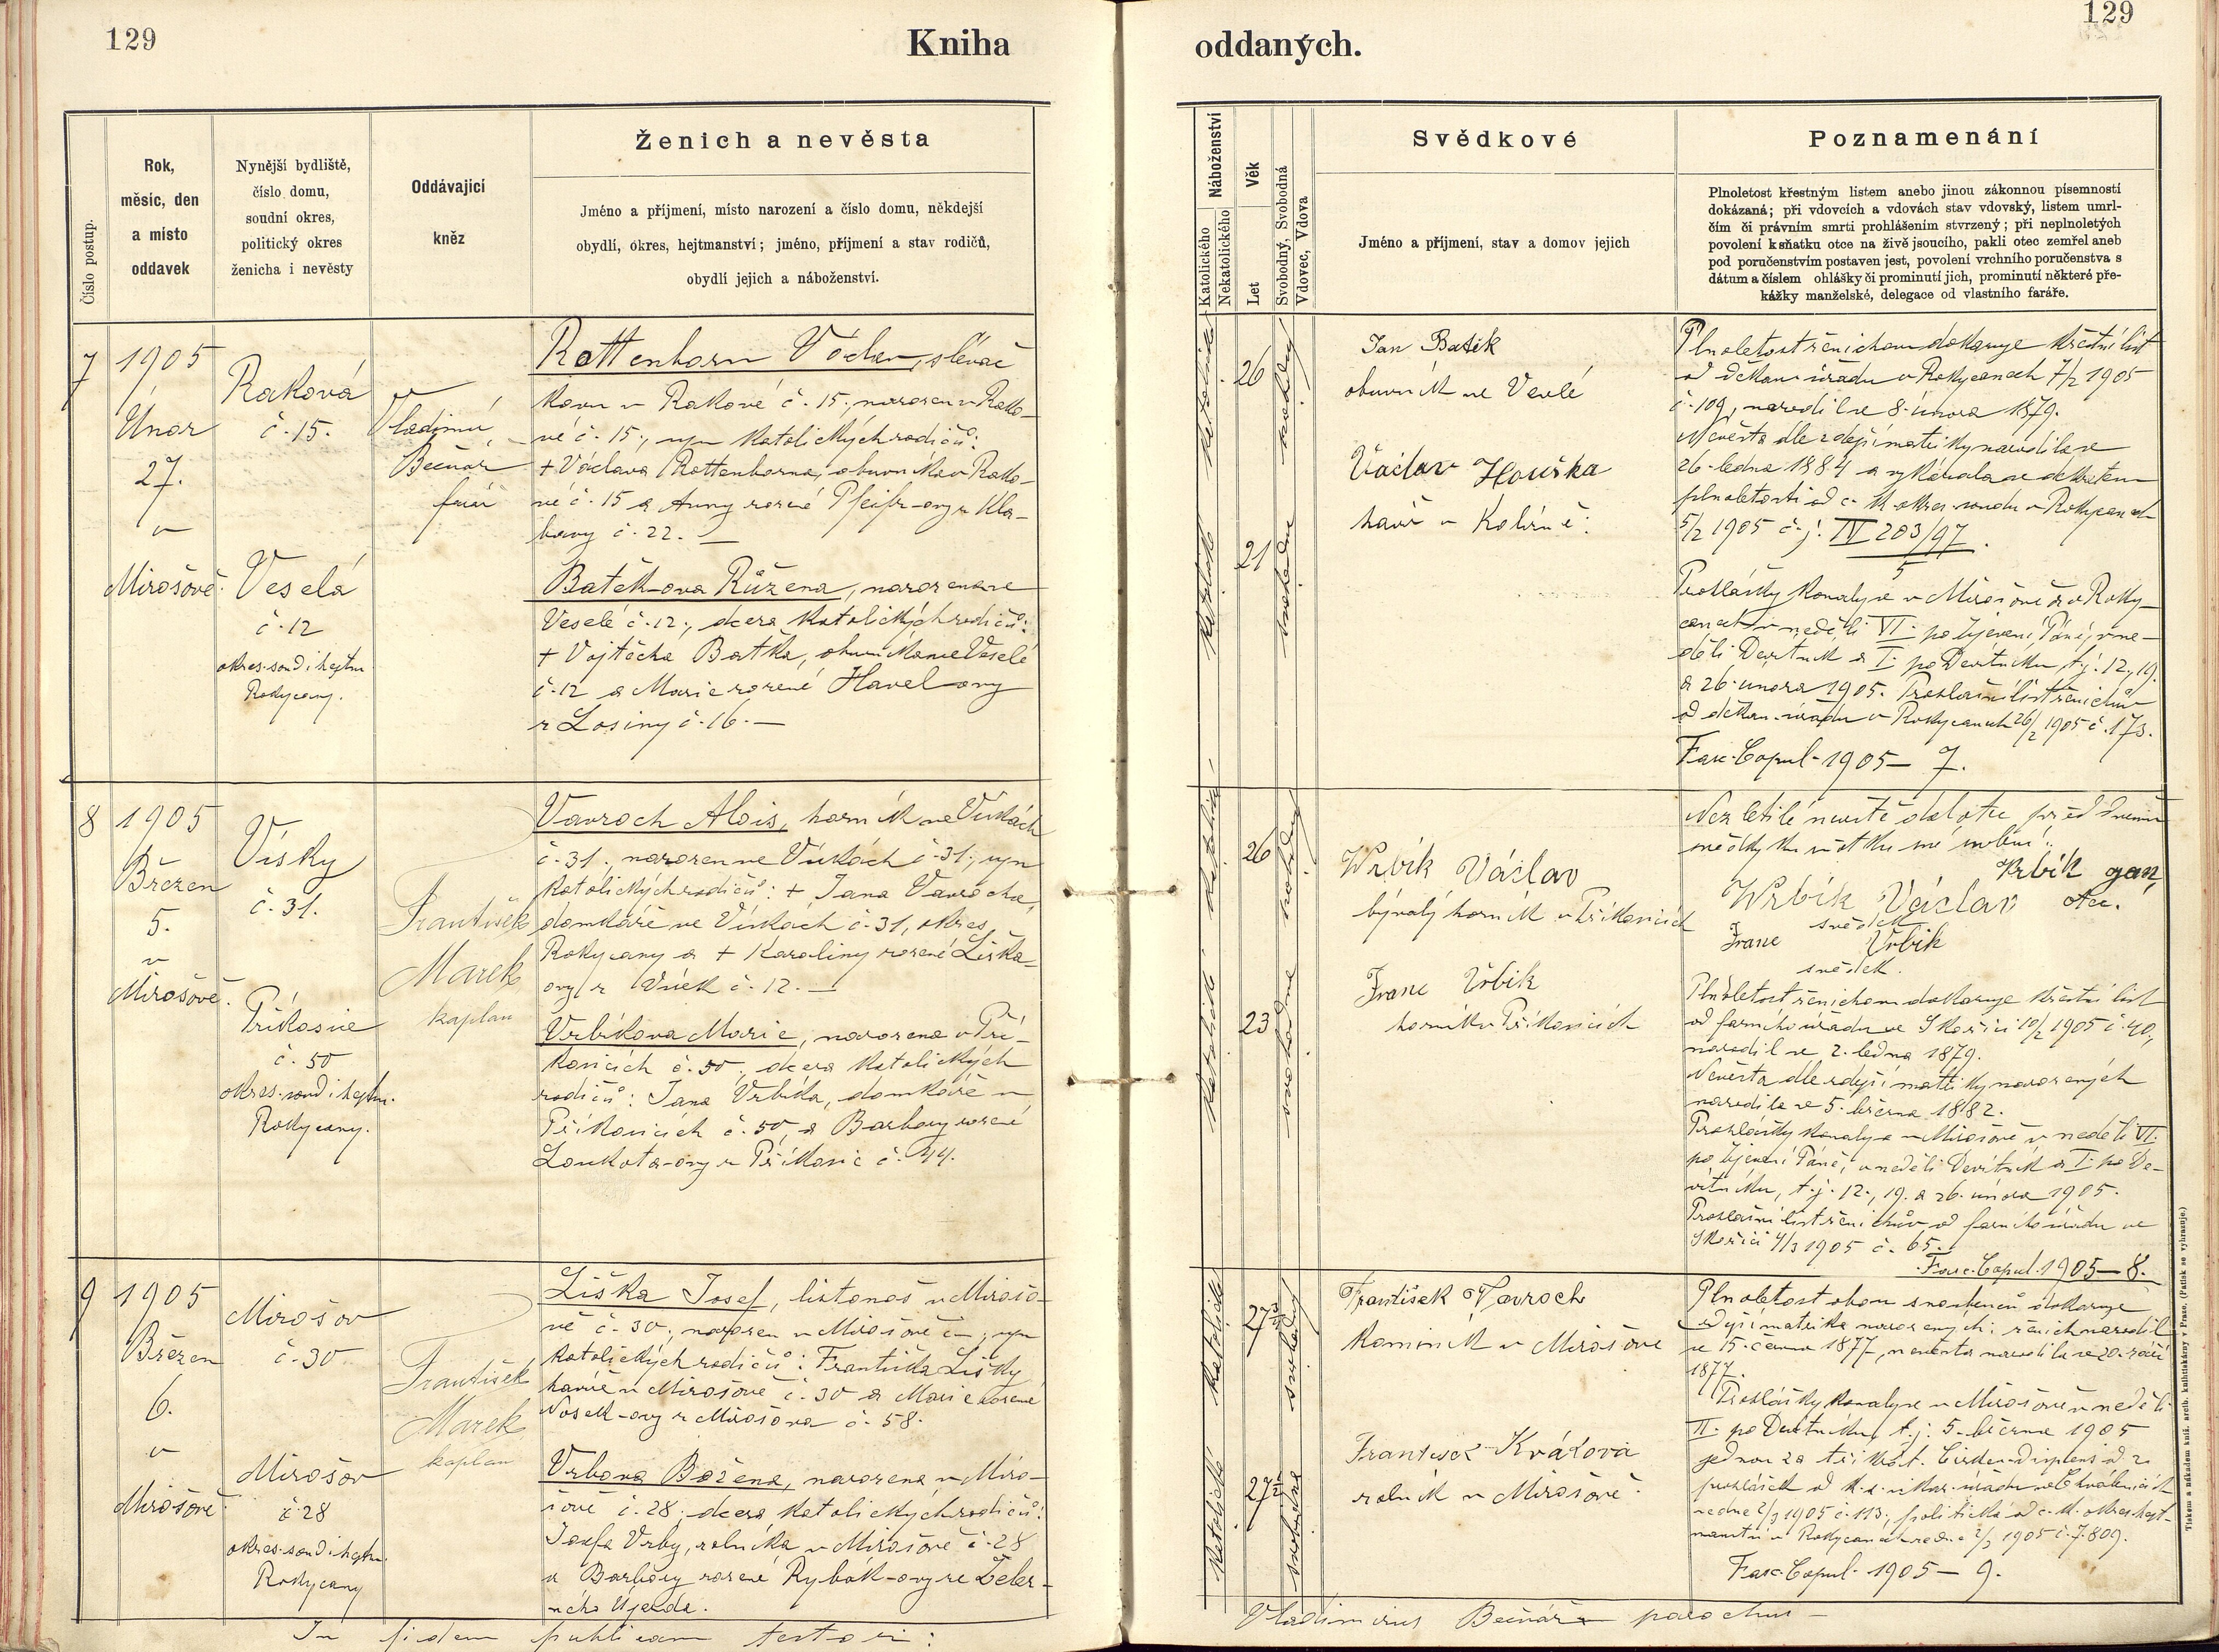 129
Kniha
Číslo postup.
Rok,
měsíc, den
a místo
oddavek
Nynější bydliště,
číslo domu,
soudní okres,
politický okres
ženicha i nevěsty
Oddávající
kněz
Ženich a nevěsta
Jméno a příjmení, místo narození a číslo domu, někdejší
obydlí, okres, hejtmanství; jméno, příjmení a stav rodičů,
obydlí jejich a náboženství.
7
1905
Únor
27.
v
Mirošově.
Raková
č. 15.
Veselá
č. 12
okres. soud i hejtm.
Rokycany.
Vladimír
Bečvář
farář
Rottenborn Václav, slévač
kovu v Rakové č. 15., narozen v Rako-
vé č. 15., syn katolických rodičů:
+ Václava Rottenborna, obuvníka v Rako-
vé č. 15 a Anny rozené Pfeifr-ovy z Kla-
bavy č. 22. —
Batěk-ova Růžena, narozena ve
Veselé č. 12., dcera katolických rodičů:
+ Vojtěcha Baťka, obuvníka ve Veselé
č. 12 a Marie rozené Havel-ovy
z Losiny č. 16. —
8
1905
Březen
5.
v
Mirošově.
Vísky
č. 31.
Příkosice
č. 50
okres. soud i hejtm.
Rokycany.
František
Marek
kaplan
Vavroch Alois, horník ve Vískách
č. 31., narozen ve Vískách č. 31., syn
katolických rodičů: + Jana Vavrocha,
domkáře ve Vískách č. 31, okres
Rokycany a + Karoliny rozené Liška-
ovy z Vísek č. 12. —
Vrbíkova Marie, narozena v Pří-
kosicích č. 50., dcera katolických
rodičů: Jana Vrbíka, domkáře v
Příkosicích č. 50, a Barbory rozené
Loukota-ovy z Příkosic č. 44.
9
1905
Březen
6.
v
Mirošově.
Mirošov
č. 30
Mirošov
č. 28
okres. soud i hejtm.
Rokycany
František
Marek
kaplan
Liška Josef, listonoš v Mirošo-
vě č. 30., narozen v Mirošově č —, syn
katolických rodičů: Františka Lišky
havíře v Mirošově č. 30 a Marie rozené
Nosek-ovy z Mirošova č. 58.
Vrbova Božena, narozena v Miro-
šově č. 28., dcera katolických rodičů:
Josefa Vrby, rolníka v Mirošově č. 28
a Barbory rozené Rybák-ovy ze Želez-
ného Újezda.
In fidem publicam testor:
129
oddaných.
Náboženství
Katolického
Nekatolického
Věk
Let
Svobodný, Svobodná
Vdovec, Vdova
Svědkové
Jméno a příjmení, stav a domov jejich
Poznamenání
Plnoletost křestným listem anebo jinou zákonnou písemností
dokázaná; při vdovcích a vdovách stav vdovský, listem umrl-
čím či právním smrti prohlášením stvrzený; při neplnoletých
povolení k sňatku otce na živě jsoucího, pakli otec zemřel aneb
pod poručenstvím postaven jest, povolení vrchního poručenstva s
dátum a číslem ohlášky či prominutí jich, prominutí některé pře-
kážky manželské, delegace od vlastního faráře.
katolické
26
svobodný
katolické
21
svobodna
Jan Batěk
obuvník ve Veselé
Václav Houška
havíř v Kolvíně:
Plnoletost ženichovu dokazuje křestní list
od děkan. úřadu v Rokycanech 7/2 1905
č. 109, narodil se 8. února 1879.
Nevěsta dle zdejší matriky narodila se
26. ledna 1884 a vykázala se dekretem
plnoletosti od c. k. okres. soudu v Rokycanech
5/2 1905 č. j. IV 203/97
5
Prohlášky konaly se v Mirošově a v Roky-
canech v neděli VI. po Zjevení Páně, v ne-
děli Devítník a I. po Devítníku, t. j. 12., 19.
a 26. února 1905. Prohlašní list ženichův
od děkan. úřadu v Rokycanech 26/2 1905 č. 173.
Fasc. Copul. 1905 — 7.
katolické
26
svobodný
katolické
23
svobodna
Wrbík Václav
bývalý horník v Příkosicích
Franc Vrbik
horník v Příkosicích
Nezletilé nevěstě dal otec před dvěma
svědky ku sňatku své svolení:
Vrbík Jan,
otec.
Wrbík Václav
svědek
Franc Vrbik
svědek.
Plnoletost ženichovu dokazuje křestní list
od farního úřadu ve Skořici 10/2 1905 č. 40,
narodil se 2. ledna 1879.
Nevěsta dle zdejší matriky narozených
narodila se 5. března 1882.
Prohlášky konaly se v Mirošově v neděli VI.
po Zjevení Páně, v neděli Devítník a I. po De-
vítníku, t. j. 12., 19. a 26. února 1905.
Prohlašní list ženichův od farního úřadu ve
Skořici 4/3 1905 č. 65.
Fasc. Copul. 1905 — 8.
katolické
27
svobodný
katolické
27
svobodna
František Vavroch
kominík v Mirošově
František Kvášova
rolník v Mirošově.
Plnoletost obou snoubenců dokazuje
zdejší matrika narozených: ženich narodil
se 15. června 1877, nevěsta narodila se 20. září
1877.
Prohlášky konaly se v Mirošově v neděli
II. po Devítníku, t. j. 5. března 1905
jednou za třikrát. Církev. dispens od 2
prohlášek od
ze dne 2/3 1905 č. 113, politická od c. k. okres. hejt-
manství v Rokycanech ze dne 2/3 1905 č. 7.809.
Fasc. Copul. 1905 — 9.
Vladimirus Bečvář parochus —
Tiskem a nákladem kníž. arcib. knihtiskárny v Praze. (Patisk se vyhrazuje.)